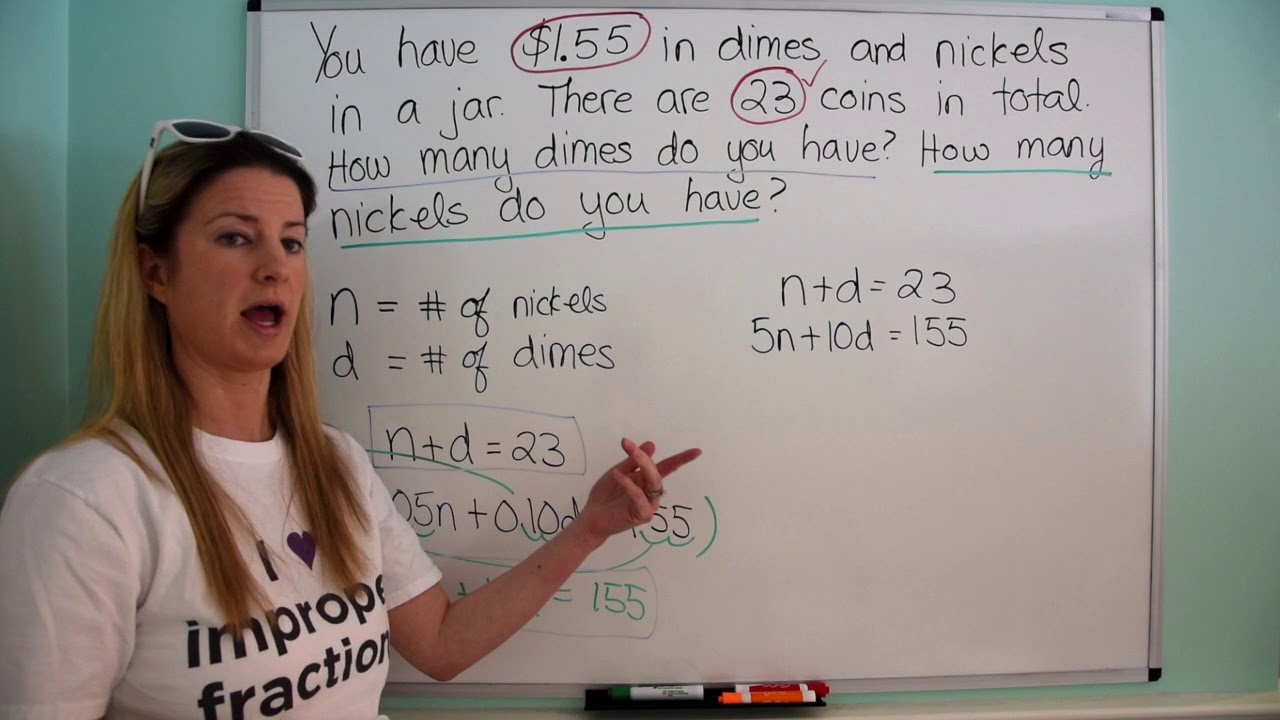 You have $1.55 in dimes and nickels
in a jar. There are 23 coins in total.
How many dimes do you have? How many
nickels do you have?
n = # of nickels
d = # of dimes
n+d=23
05n+0.10d 55)
= 155
n+d=23
5n+10d=155
I
imprope
fraction